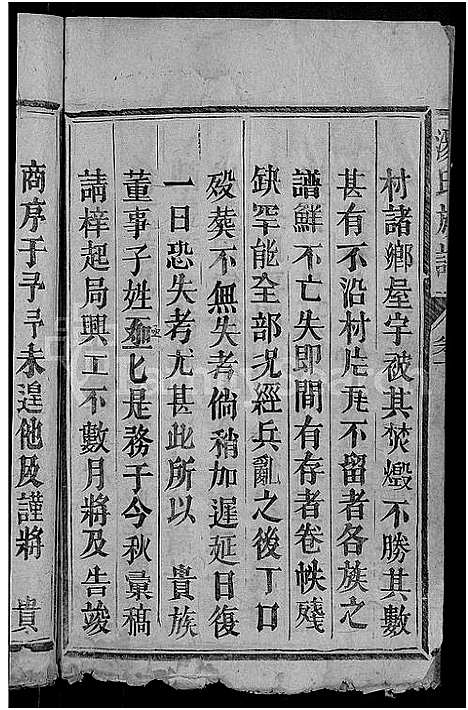 湯氏族譜
村諸鄉屋宇被其焚燬不勝其數
甚有不沿村片瓦不留者各族之
譜鮮不亡失即間有存者卷帙殘
缺罕能全部况經兵亂之後丁口
殁葬不無失考倘稍加遲延日復
一日恐失考尤甚此所以 貴族
董事子姓 匕是務于今秋彙稿
請梓起局興工不數月將及告竣
商序于予予未遑他及謹將 貴